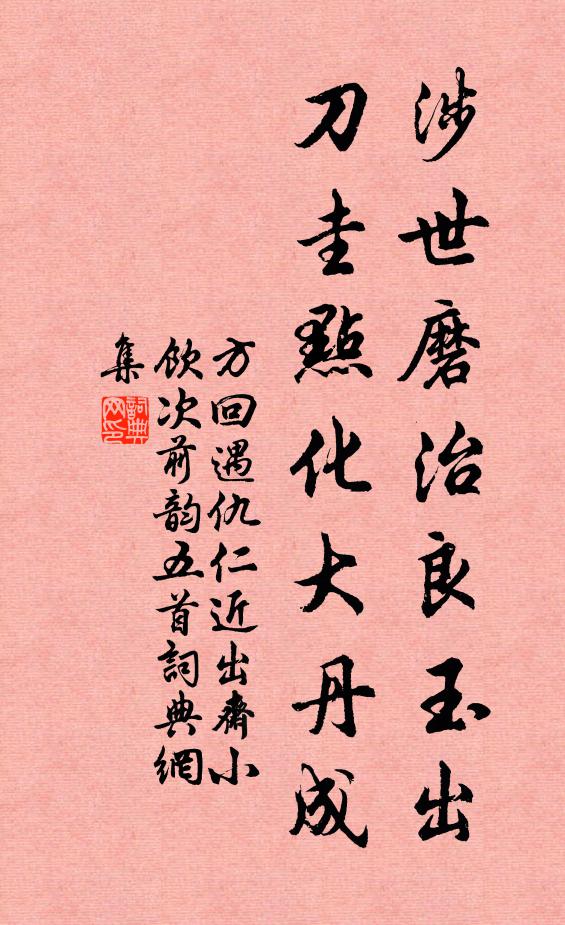 涉世磨治良玉出
刀圭點化大丹成
方回遇仇仁近出齋小
飲次前韵五首詞典網
集
詞典
网印